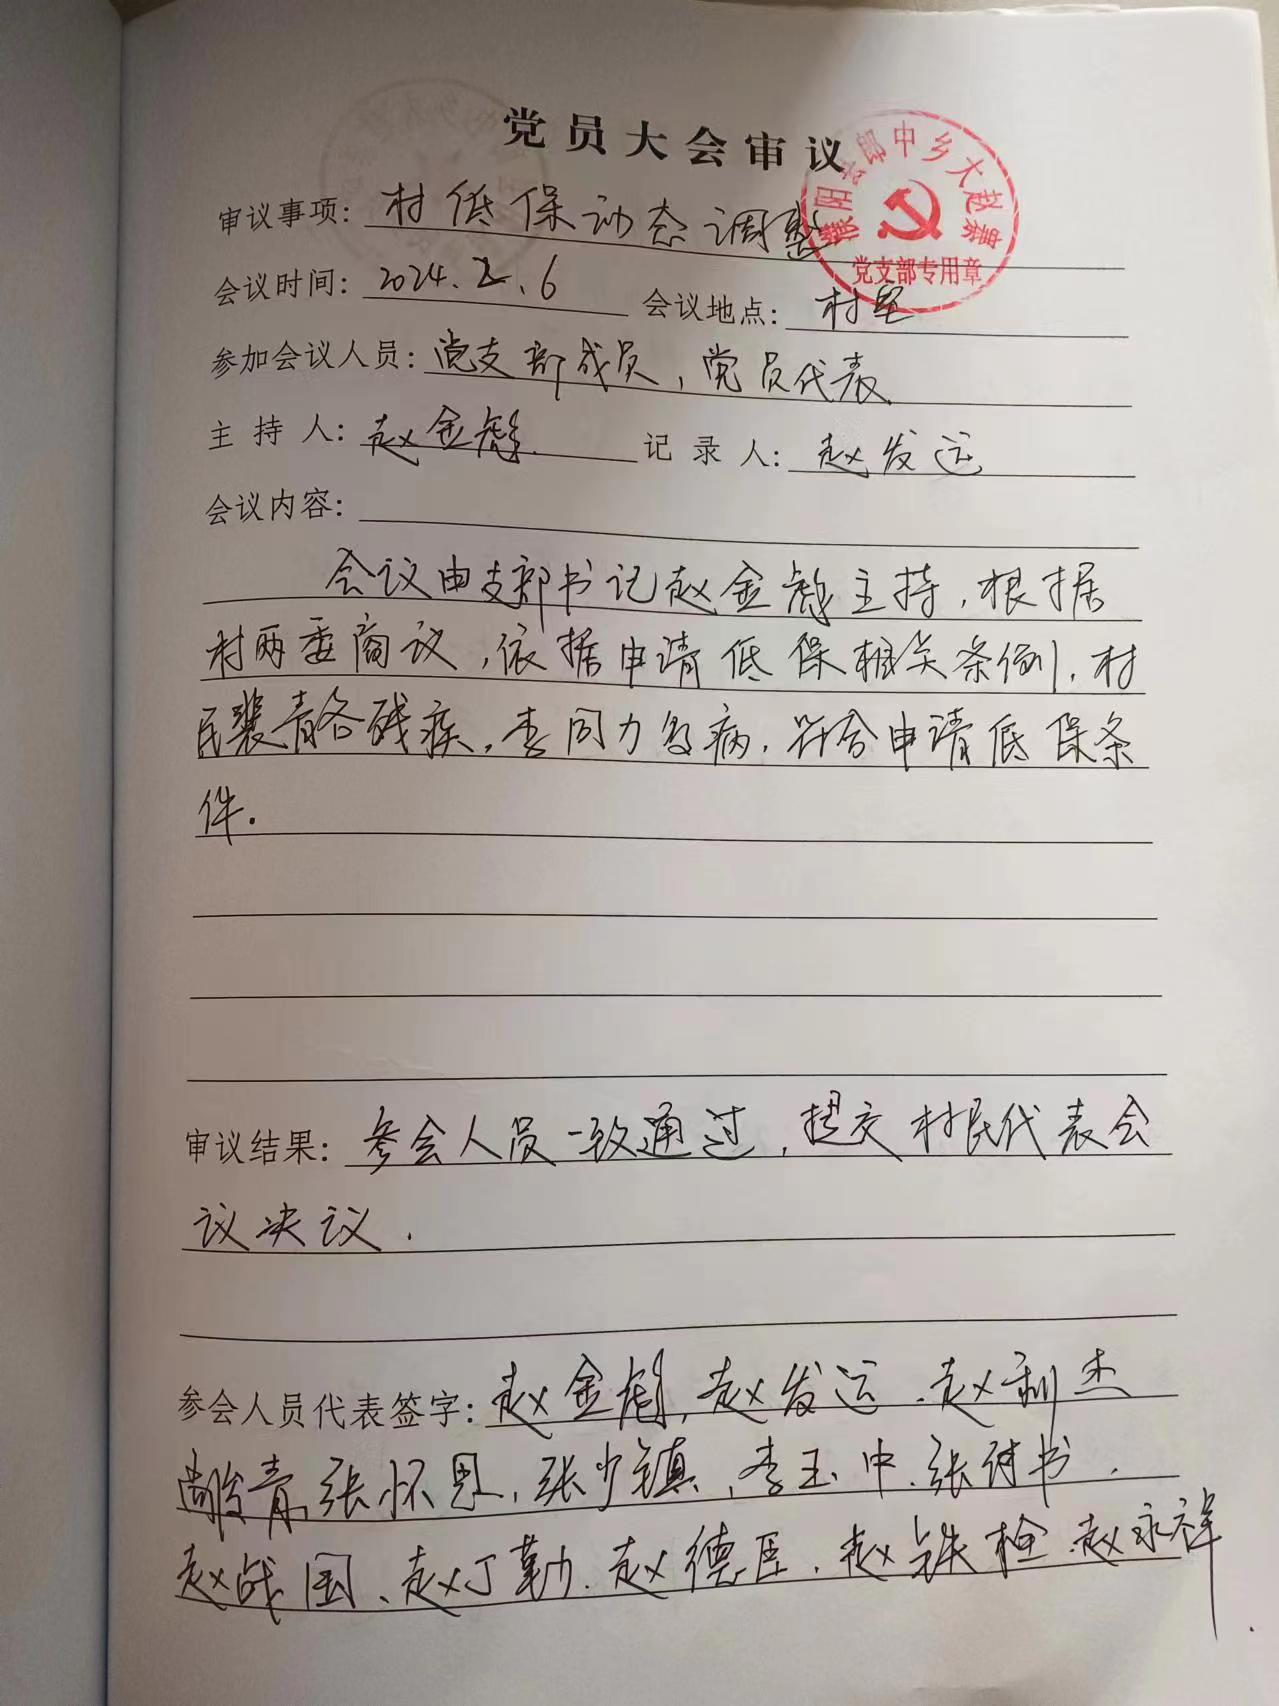 党员大会审议
濮阳县郎中乡大赵寨
党支部专用章
审议事项：村低保动态调整
会议时间：2024.2.6 会议地点：村室
参加会议人员：党支部成员，党员代表.
主持人：赵金彪. 记录人：赵发运
会议内容：
会议由支部书记赵金彪主持，根据
村两委商议，依据申请低保相关条例，村
民裴青各残疾，李同力多病，符合申请低保条
件.
审议结果：参会人员一致通过，提交村民代表会
议决议.
参会人员代表签字：赵金彪，赵发运.赵利杰
青，张怀恩，张少镇，李玉中.张付书.
赵战国、赵丁勤.赵德臣、赵铁栓.赵永祥